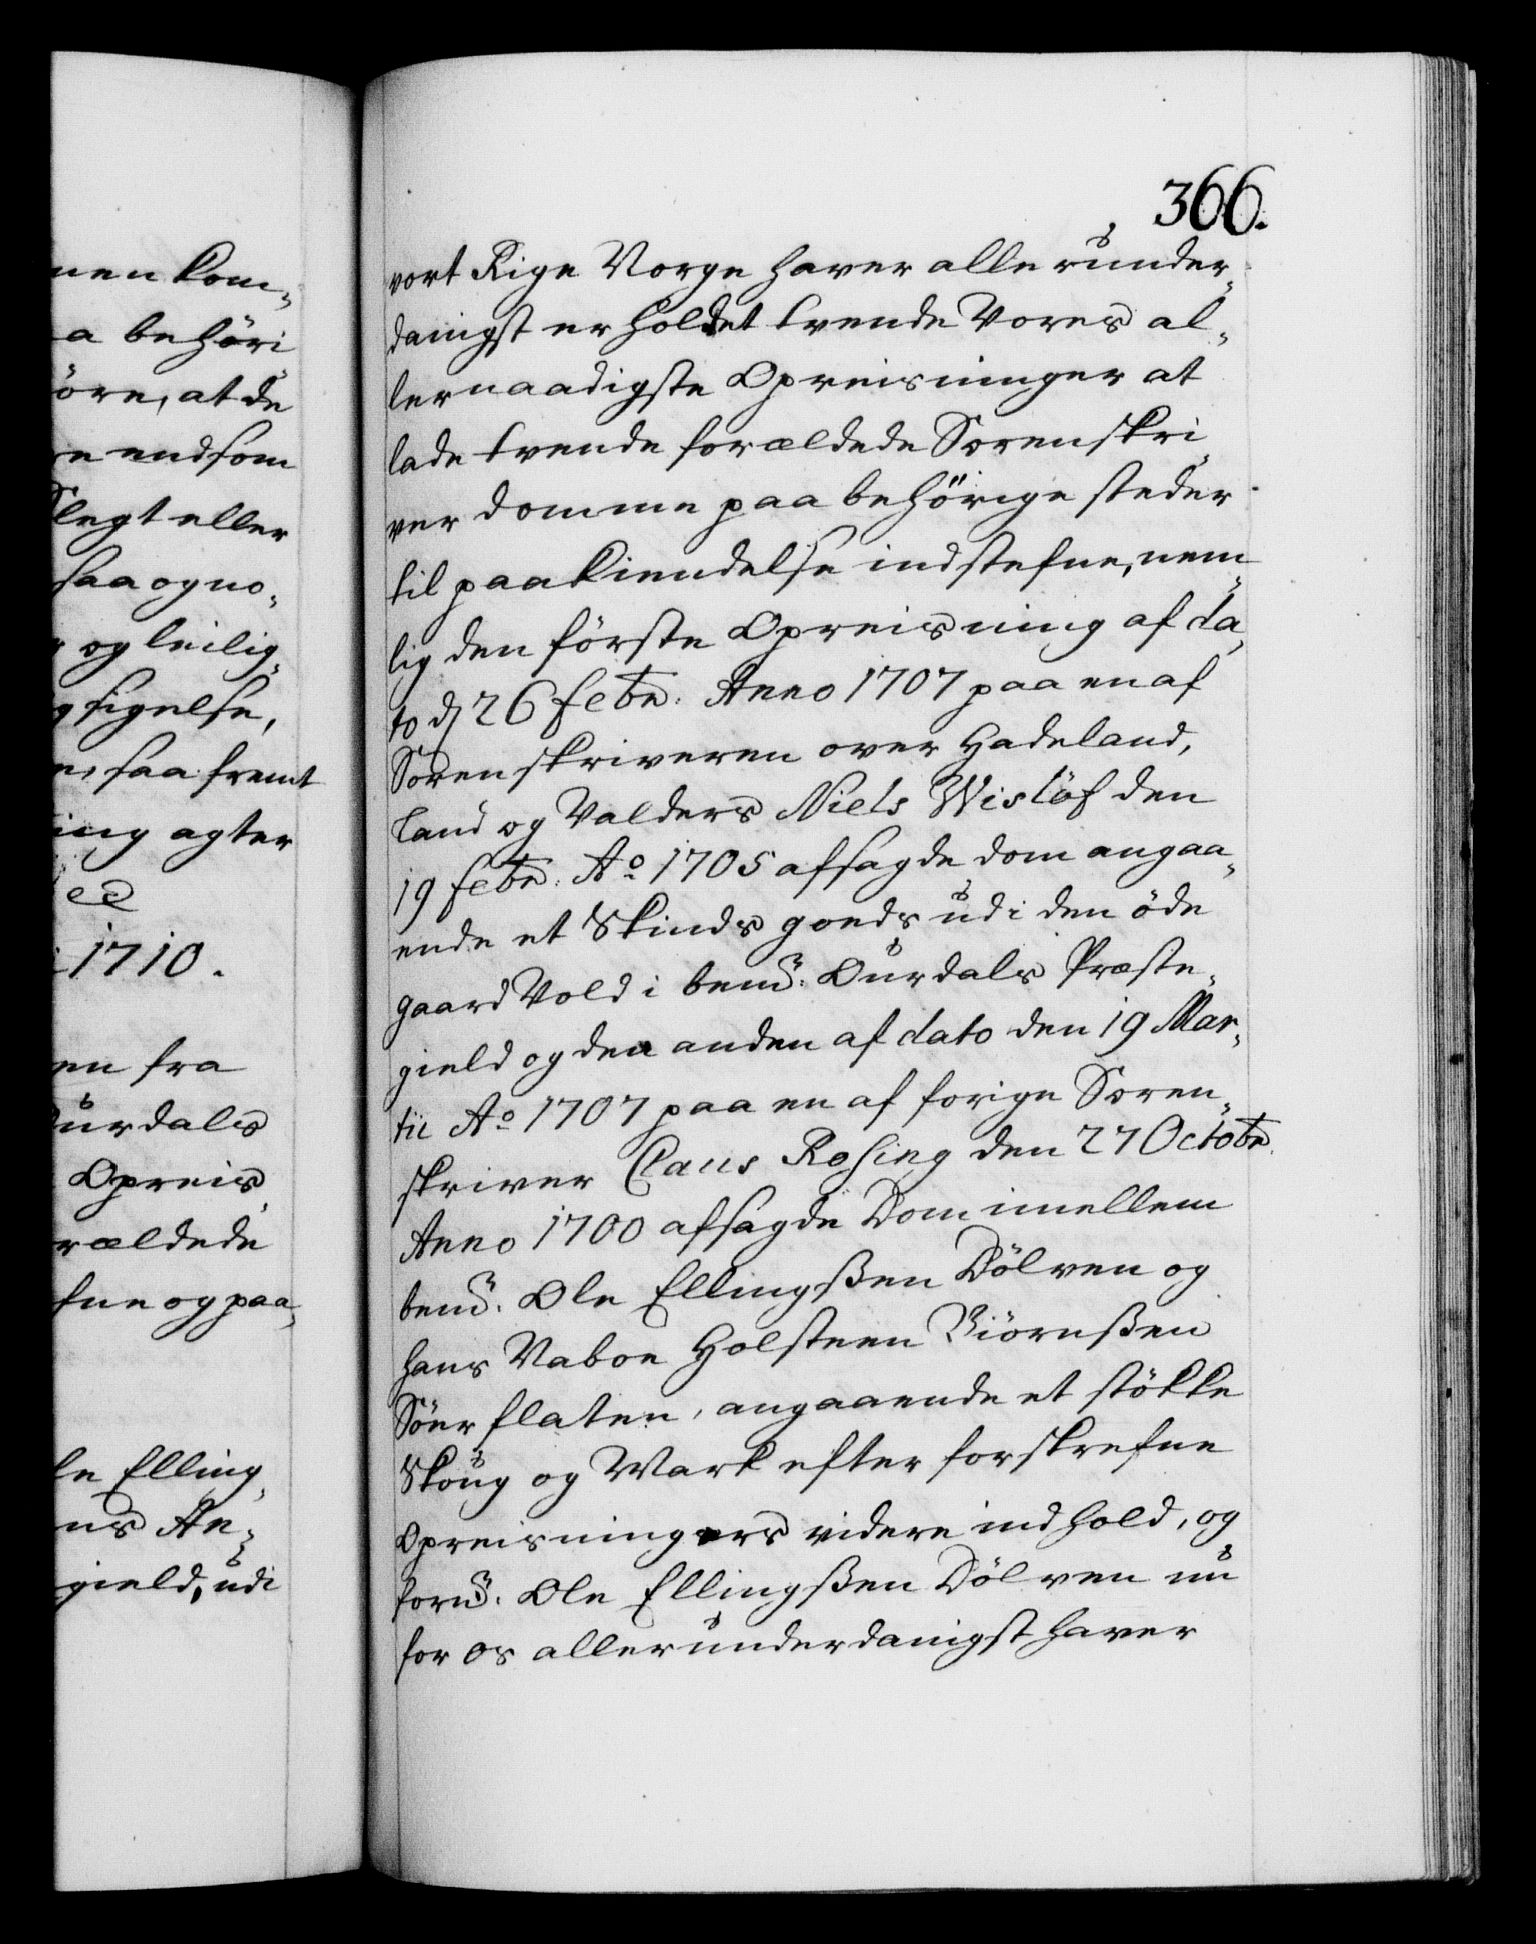 nen kom¬
a behöri
öre, at de
re end som
Slegt eller
saa og no¬
og leilig¬
g sigelse,
n, saa fremt
ing agter
1710.
en fra
urdals
Opreis
rældede
fne og paa¬
le Elling¬
ns An¬
gield, udi
366.
vort Rige Norge haver allerunder¬
danigst erholdet tvende Vores al¬
lernaadigste Opreisninger at
lade tvende forældede Sorenskri¬
ver domme paa behörige steder
til paakiendelse indstefne, nem¬
lig den förste Opreisning af da¬
to d 26 Febr: Anno 1707 paa en af
Sorenskriveren over Hadeland,
Land og Valders Niels Wislöf den
19 Febr: Ao 1705 afsagde dom angaa¬
ende et Skinds goeds udi den öde
gaard Vold i bemt: Ourdals Præste¬
gield og den anden af dato den 19 Mar¬
tii Ao 1707 paa en af forige Soren¬
skriver Claus Rosing den 27 Octobr.
Anno 1700 afsagde Dom imellem
bemt. Ole Ellingßen Dölven og
hans Naboe Holsteen Biörnßen
Söer flaten, angaaende et stökke
Skoug og Mark efter forskrefne
Opreisningers videre indhold, og
fornt. Ole Ellingßen Dölven nu
for os allerunderdanigst haver